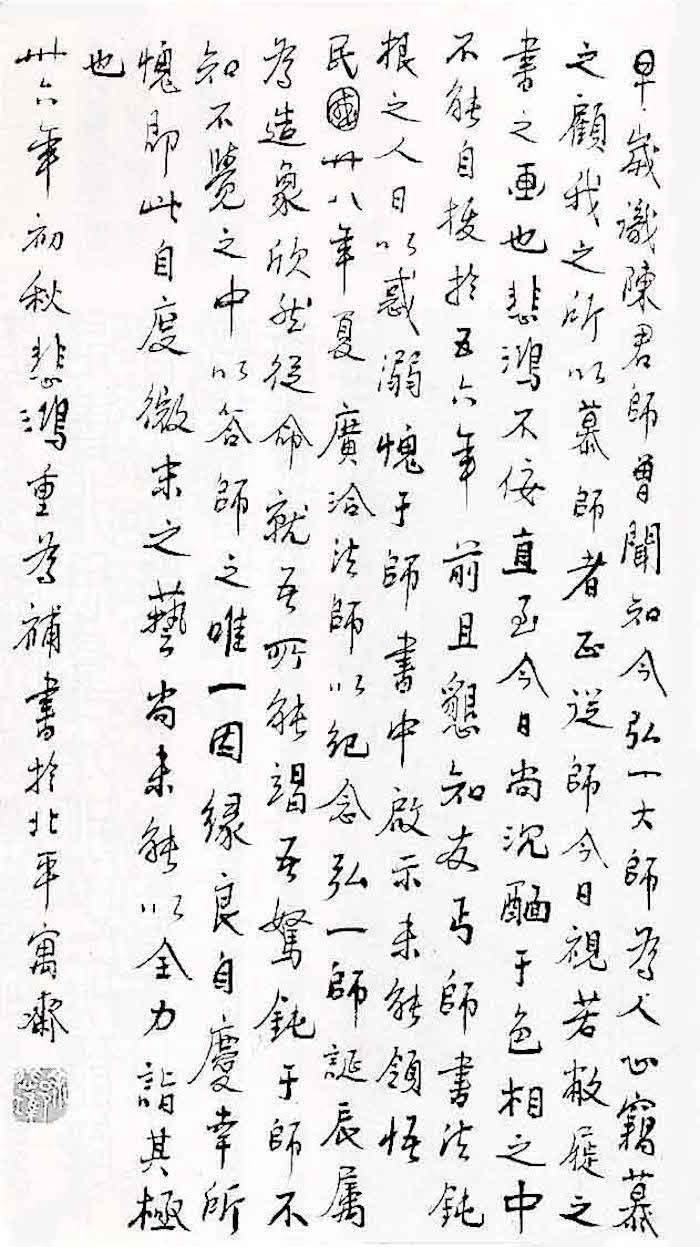 早歲識陳君師曾聞知今弘一大師為人心竊慕
之顧我之所以慕師者正從師今日視若敝屣之
書之画也悲鴻不佞直至今日尚沉酣于色相之中
不能自拔於五六年前且懇知友丐師書法鈍
根之人日以惑溺愧于師書中啟示未能領悟
民國卅八年夏廣洽法師以紀念弘一師誕辰属
為造象欣然從命就吾所能竭吾駑鈍于師不
知不覺之中以答師之唯一因緣良自慶幸所
愧即此自度微末之藝尚未能以全力詣其極
也
卅六年初秋悲鴻重為補書於北平寓齋